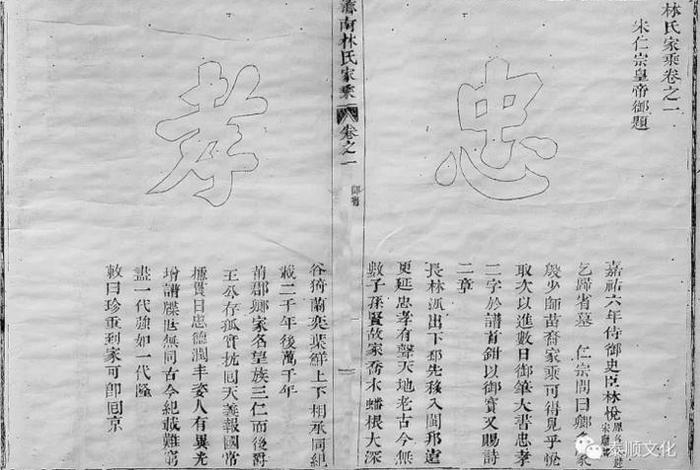 林氏家乘卷之一
宋仁宗皇帝御題
忠
嘉祐六年侍御史臣林悅
乞歸省墓 仁宗問曰卿
殷少師苗裔家乘可得見乎悅
取次以進數日御筆大書忠孝
二字於譜首鈐以御寶又賜詩
二章
長林派出下邳先移入閩邦遠
更延忠孝有聲天地老古今無
數子孫賢故家喬木蟠根大深
南林氏家乘
卷之一
孝
谷猗蘭奕葉鮮上下相承同紀
載二千年後萬千年
莆郡鄉家名望族三仁而後爵
王公存孤實抗回天義報國常
攄貫日忠德潤丰姿人有異光
增譜牒世無同古今紀載難窮
盡一代強如一代隆
敕曰珍重到家可即回京
泰顺文化